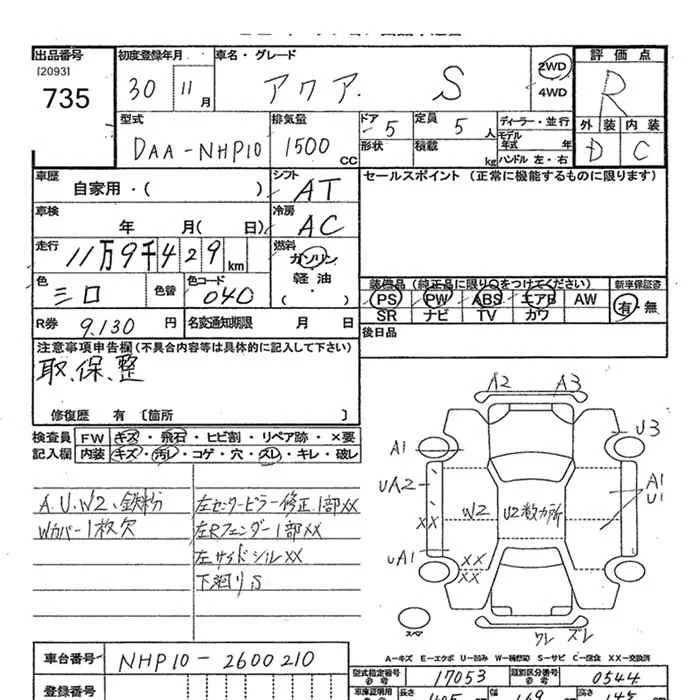 出品番号 初度登録年月 車名・グレード 評価点
[2093]
735 30 11月 アクア S 2WD 4WD R
外装 内装
D C
型式 排気量 ドア 定員 ディーラー・並行
DAA-NHP10 1500 CC 5 5人 モデル年式 年
形状 積載 kg ハンドル 左・右
車歴 自家用・( ) シフト AT セールスポイント (正常に機能するものに限ります)
車検 年 月( 日) 冷房 AC
走行 11万9千429km 燃料 ガソリン 軽油 ( ・ )
色 シロ 色替 色コード 040
装備品 (純正品に限り○をつけてください) 新車保証書
PS PW ABS エアB AW 有・無
SR ナビ TV カワ
R券 9.130 円 名変通知期限 月 日
後日品
注意事項申告欄(不具合内容等は具体的に記入して下さい)
取、保、整
修復歴 有 [箇所 ]
検査員 記入欄
FW キズ・飛石・ヒビ割・リペア跡・×要
内装 キズ・汚レ・コゲ・穴・スレ・キレ・破レ
A.U.W2、鉄粉
Wカバー1枚欠
左センターピラー修正1部XX
左Rフェンダー1部XX
左サイドシルXX
下廻りS
A2 A3
A1 U3
UA2 A1
U1
XX W2 U2数カ所
UA1 XX
XX
スペア ワレ ズレ
A-キズ E-エクボ U-凹み W-補修跡 S-サビ C-腐食 XX-交換済
車台番号 NHP10-2600210
型式指定番号 参考 17053 類別区分番号 参考 0544
登録番号
車庫証明用 参考 長さ 幅 高さ